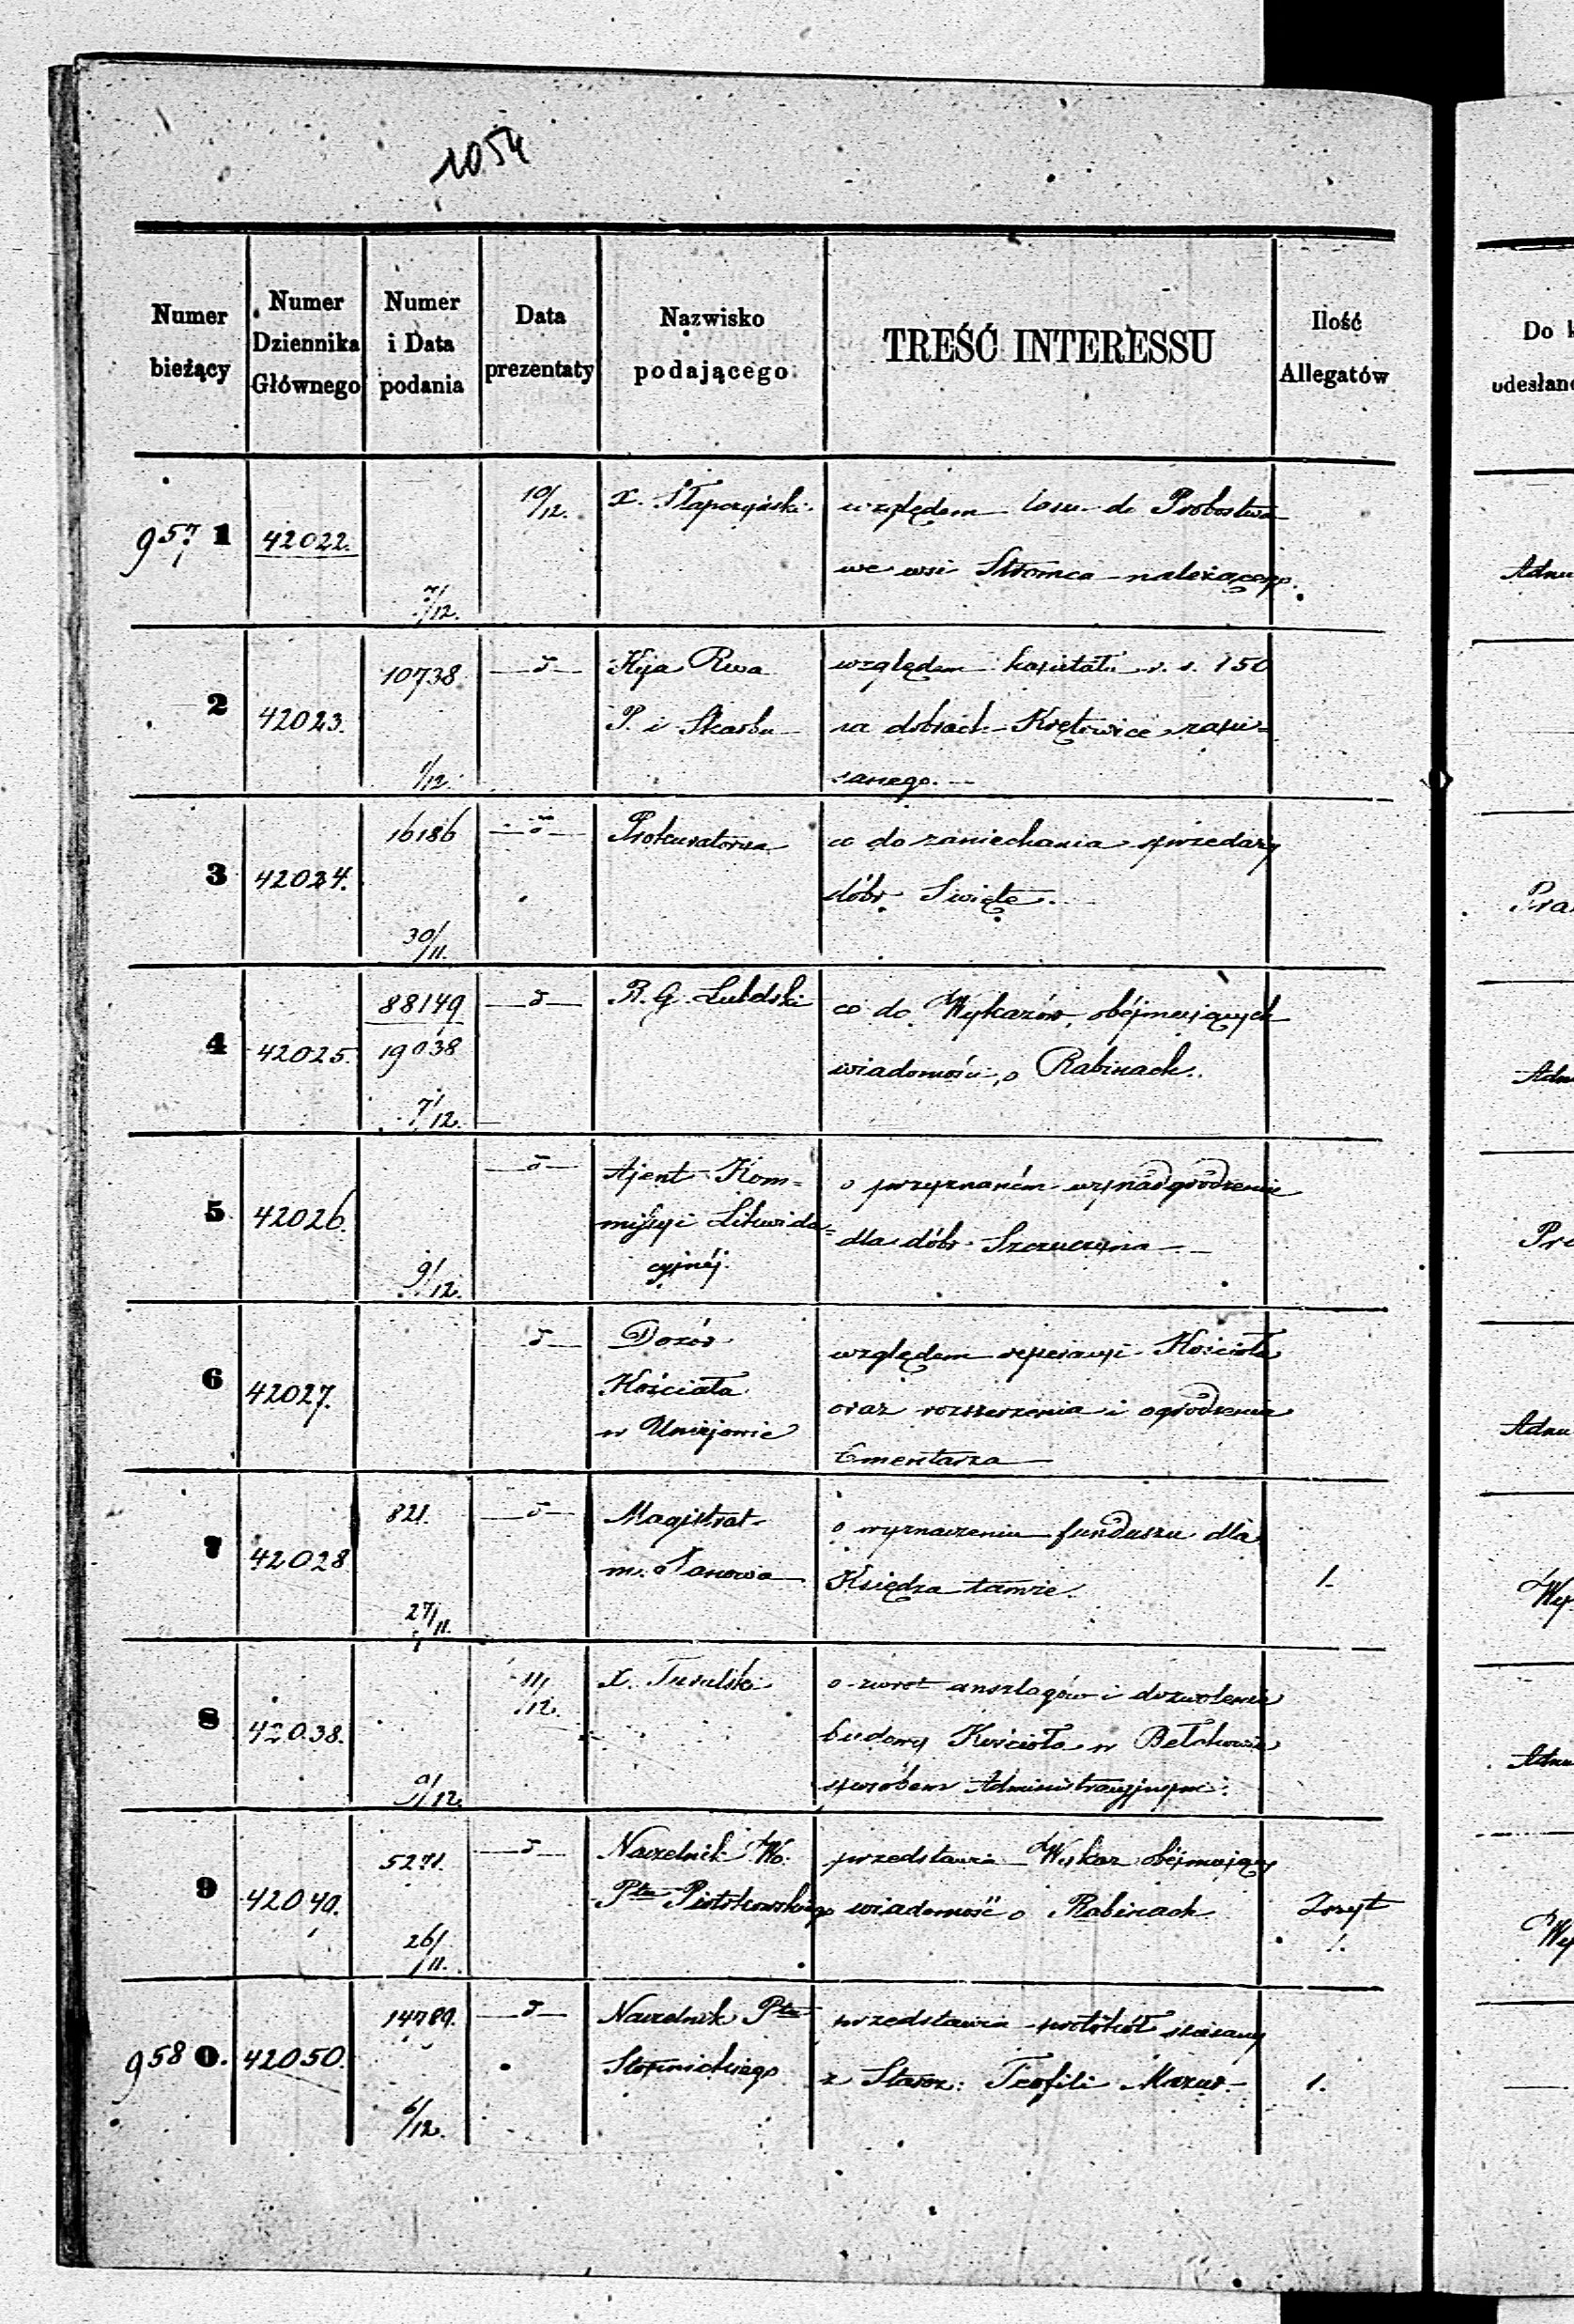 1054
Numer bieżący
Numer Dziennika Głównego
Numer i Data podania
Data prezentaty
Nazwisko podającego
TREŚĆ INTERESSU
Ilość Allegatów
957 1
42022.
7/12.
10/12.
X. Słapczyński
względem lasu do Probostwa
we wsi Stromca należącego.
2
42023.
10738
1/12.
Kija Rwa
P. i Skarbu
względem kapitału r. s. 150
na dobrach Krętowice zapi=
sanego.
3
42024.
16186
30/11.
Prokuratorya
co do zaniechania sprzedaży
dóbr Święte.
4
42025.
88149
19038
7/12.
R. G. Lubelski
co do Wykazów, obéjmujących
wiadomości o Rabinach.
5
42026.
9/12.
Ajent Kom=
missyi Likwida=
cyjnéj.
o przyznaném wynadgrodzenie
dla dóbr Szczuczyna
6
42027.
Dozór
Kościoła
w Uniejowie
względem reperacyi Kościoła
oraz rozszerzenia i ogrodzenia
Cmentarza
7
42028
821.
27/11.
Magistrat
m. Janowa
o wyznaczeniu funduszu dla
Księdza tamże.
1.
8
42038.
9/12.
11/12.
X.
o zwrot anszlagów i dozwolenie
budowy Kościoła w
sposobem Administracyjnym.
9
42049.
5271.
26/11.
Naczelnik Wo.
Ptu Piotrkowskiego
przedstawia Wykaz obéjmujący
wiadomość o Rabinach
Zszyt
1.
958 0.
42050.
14789.
6/12.
Naczelnik Ptu
Stopnickiego
przedstawia protokół spisany
z Staroz: Teofili Mazur.
1.
Do
udesłano